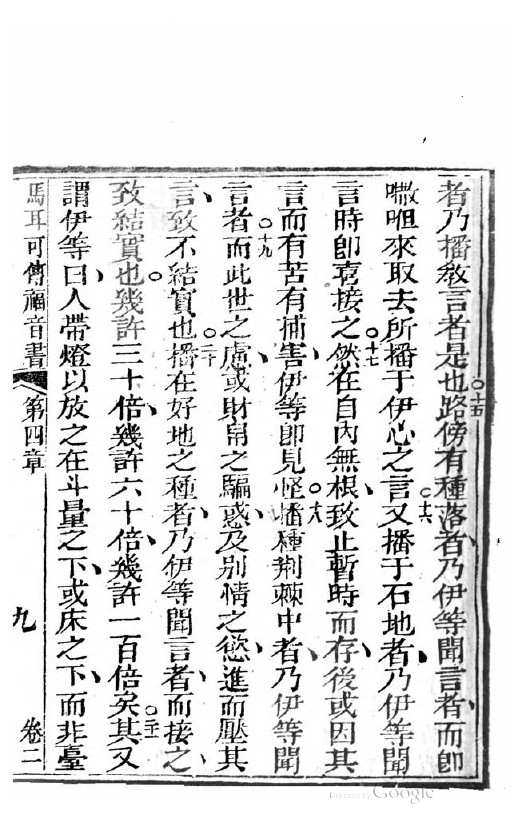 者乃播教言者是也○十五路傍有種落者乃伊等聞言者而卽
嘫呾來取去所播于伊心之言○十六又播于石地者乃伊等聞
言時卽喜接之○十七然在自內無根致止暫時而存後或因其
言而有苦有捕害伊等卽見怪○十八播種荊棘中者乃伊等聞
言者○十九而此世之慮或財帛之騙惑及別情之慾進而壓其
言致不結實也○二十播在好地之種者乃伊等聞言者而接之
致結實也幾許三十倍幾許六十倍幾許一百倍矣○二一其又
謂伊等曰人帶燈以放之在斗量之下或床之下而非臺
馬耳可傳福音書 第四章 九 卷二
Digitized by Google